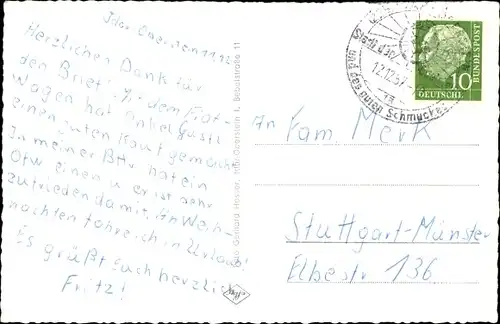 Idar-Oberstein 11.12
Herzlichen Dank für
den Brief. Zu dem Fiat-
Wagen hat Enkel Gustl
einen guten Kauf gemacht
In meiner Bttr hat ein
Ofw einen u er ist sehr
zufrieden damit. An Weih-
nachten fahre ich in Urlaub!
Es grüßt Euch herzlich
Fritz!
Idar-Oberstein 1,
11
Stadt der
12.12.57
und das guten Schmuckes
10
DEUTSCHE
BUNDESPOST
An Fam. Merk
Stuttgart-Münster
Elbestr 136